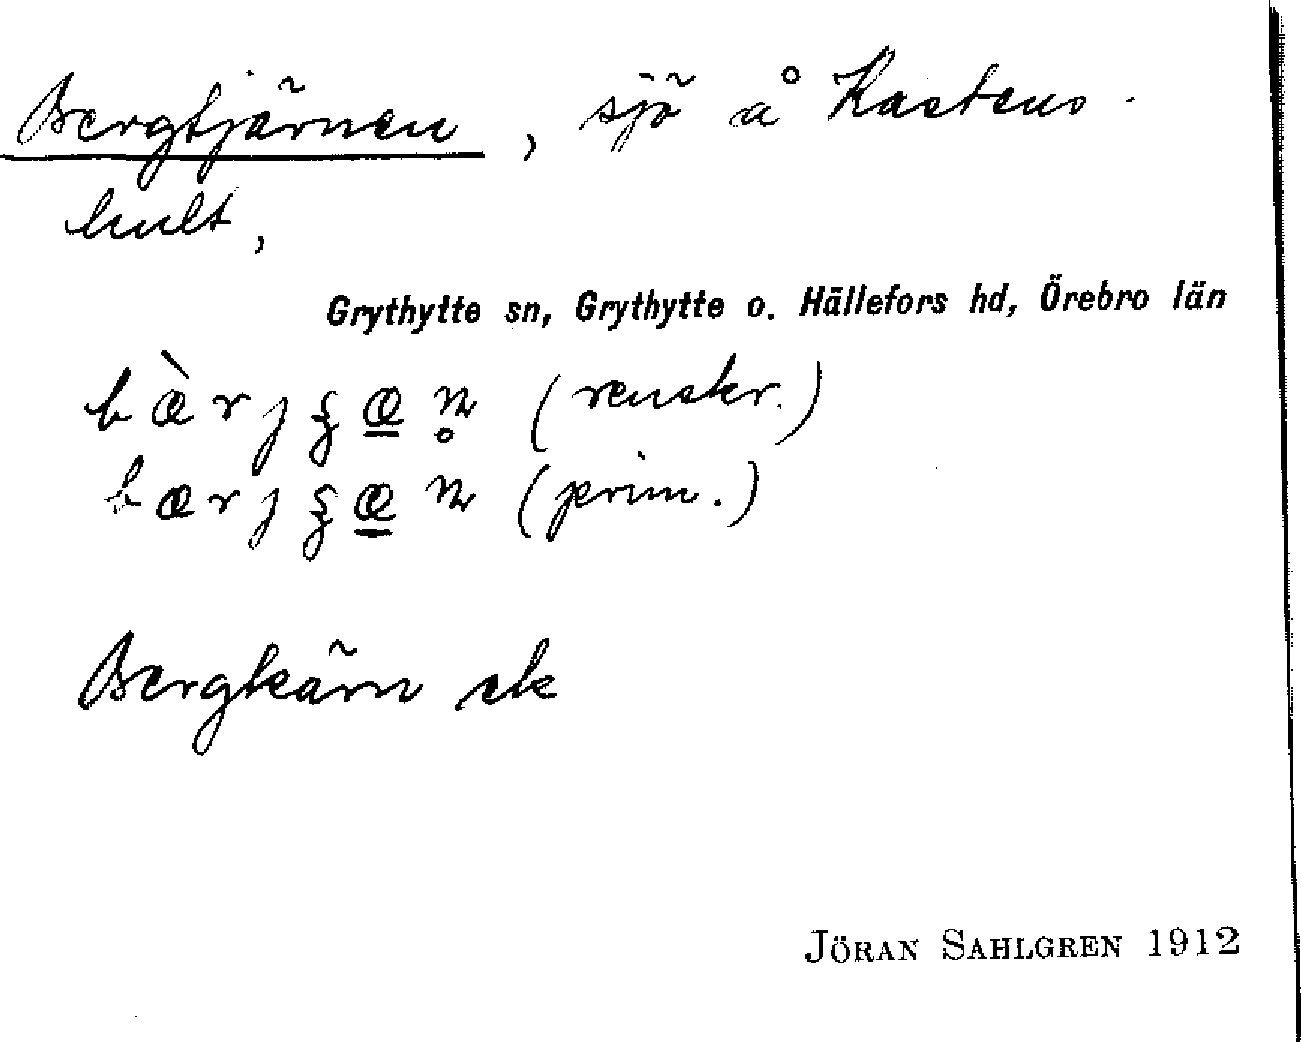 Bergtjärnen, sjö å Kastens-
hult,
Grythytte sn, Grythytte o. Hällefors hd, Örebro län
bæ̀rjʂæ̲n̥ (renskr.)
bærjʂæ̲n (prim.)
Bergkärn ek
JÖRAN SAHLGREN 1912